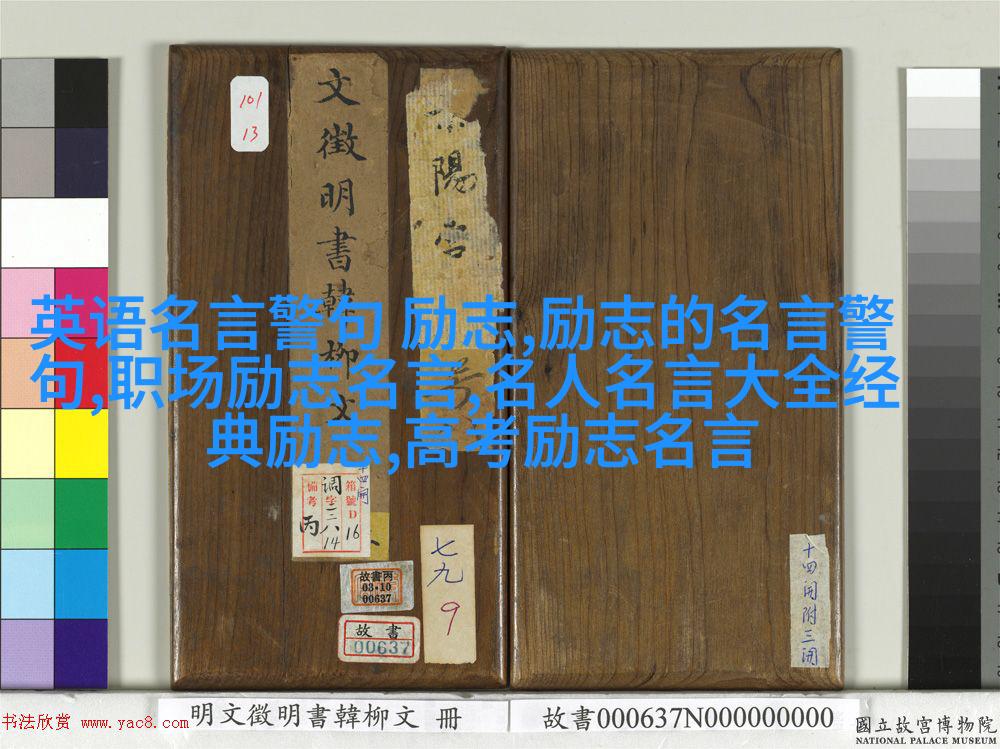 101
13
文徵明書韓柳文
陽宮
英语名言警句 励志,励志的名言警
句,职场励志名言,名人名言大全经
典励志,高考励志名言
備考
調字三八
14
丙
箱號D
16
故書丙
03·10
00637
故書
00637
七九
9
十四開附三開
明文徵明書韓柳文 冊
故書000637N000000000
國立故宮博物院
NATIONAL PALACE MUSEUM
书法欣赏 www.yac8.com